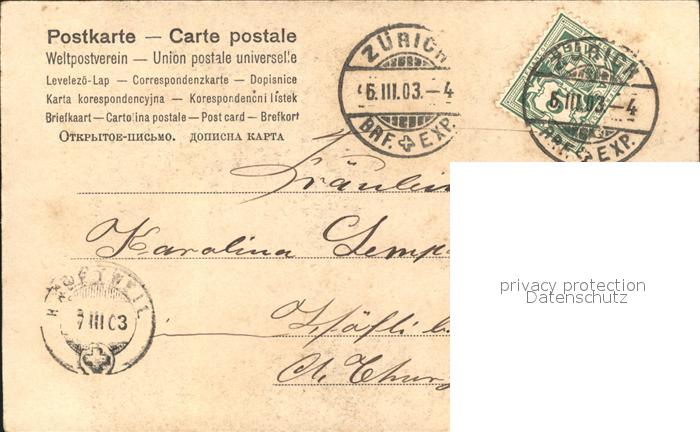 Postkarte — Carte postale
Weltpostverein — Union postale universelle
Levelező-Lap — Correspondenzkarte — Dopisnice
Karta korespondencyjna — Korespondenční lístek
Briefkaart — Cartolina postale — Post card — Brefkort
Открытое-письмо. дописна карта
ZÜRICH
6.III.03.–4
BRF. EXP.
ZÜRICH
6.III.03.–4
BRF. EXP.
Fräulein
Karolina
7 III 03
privacy protection
Datenschutz